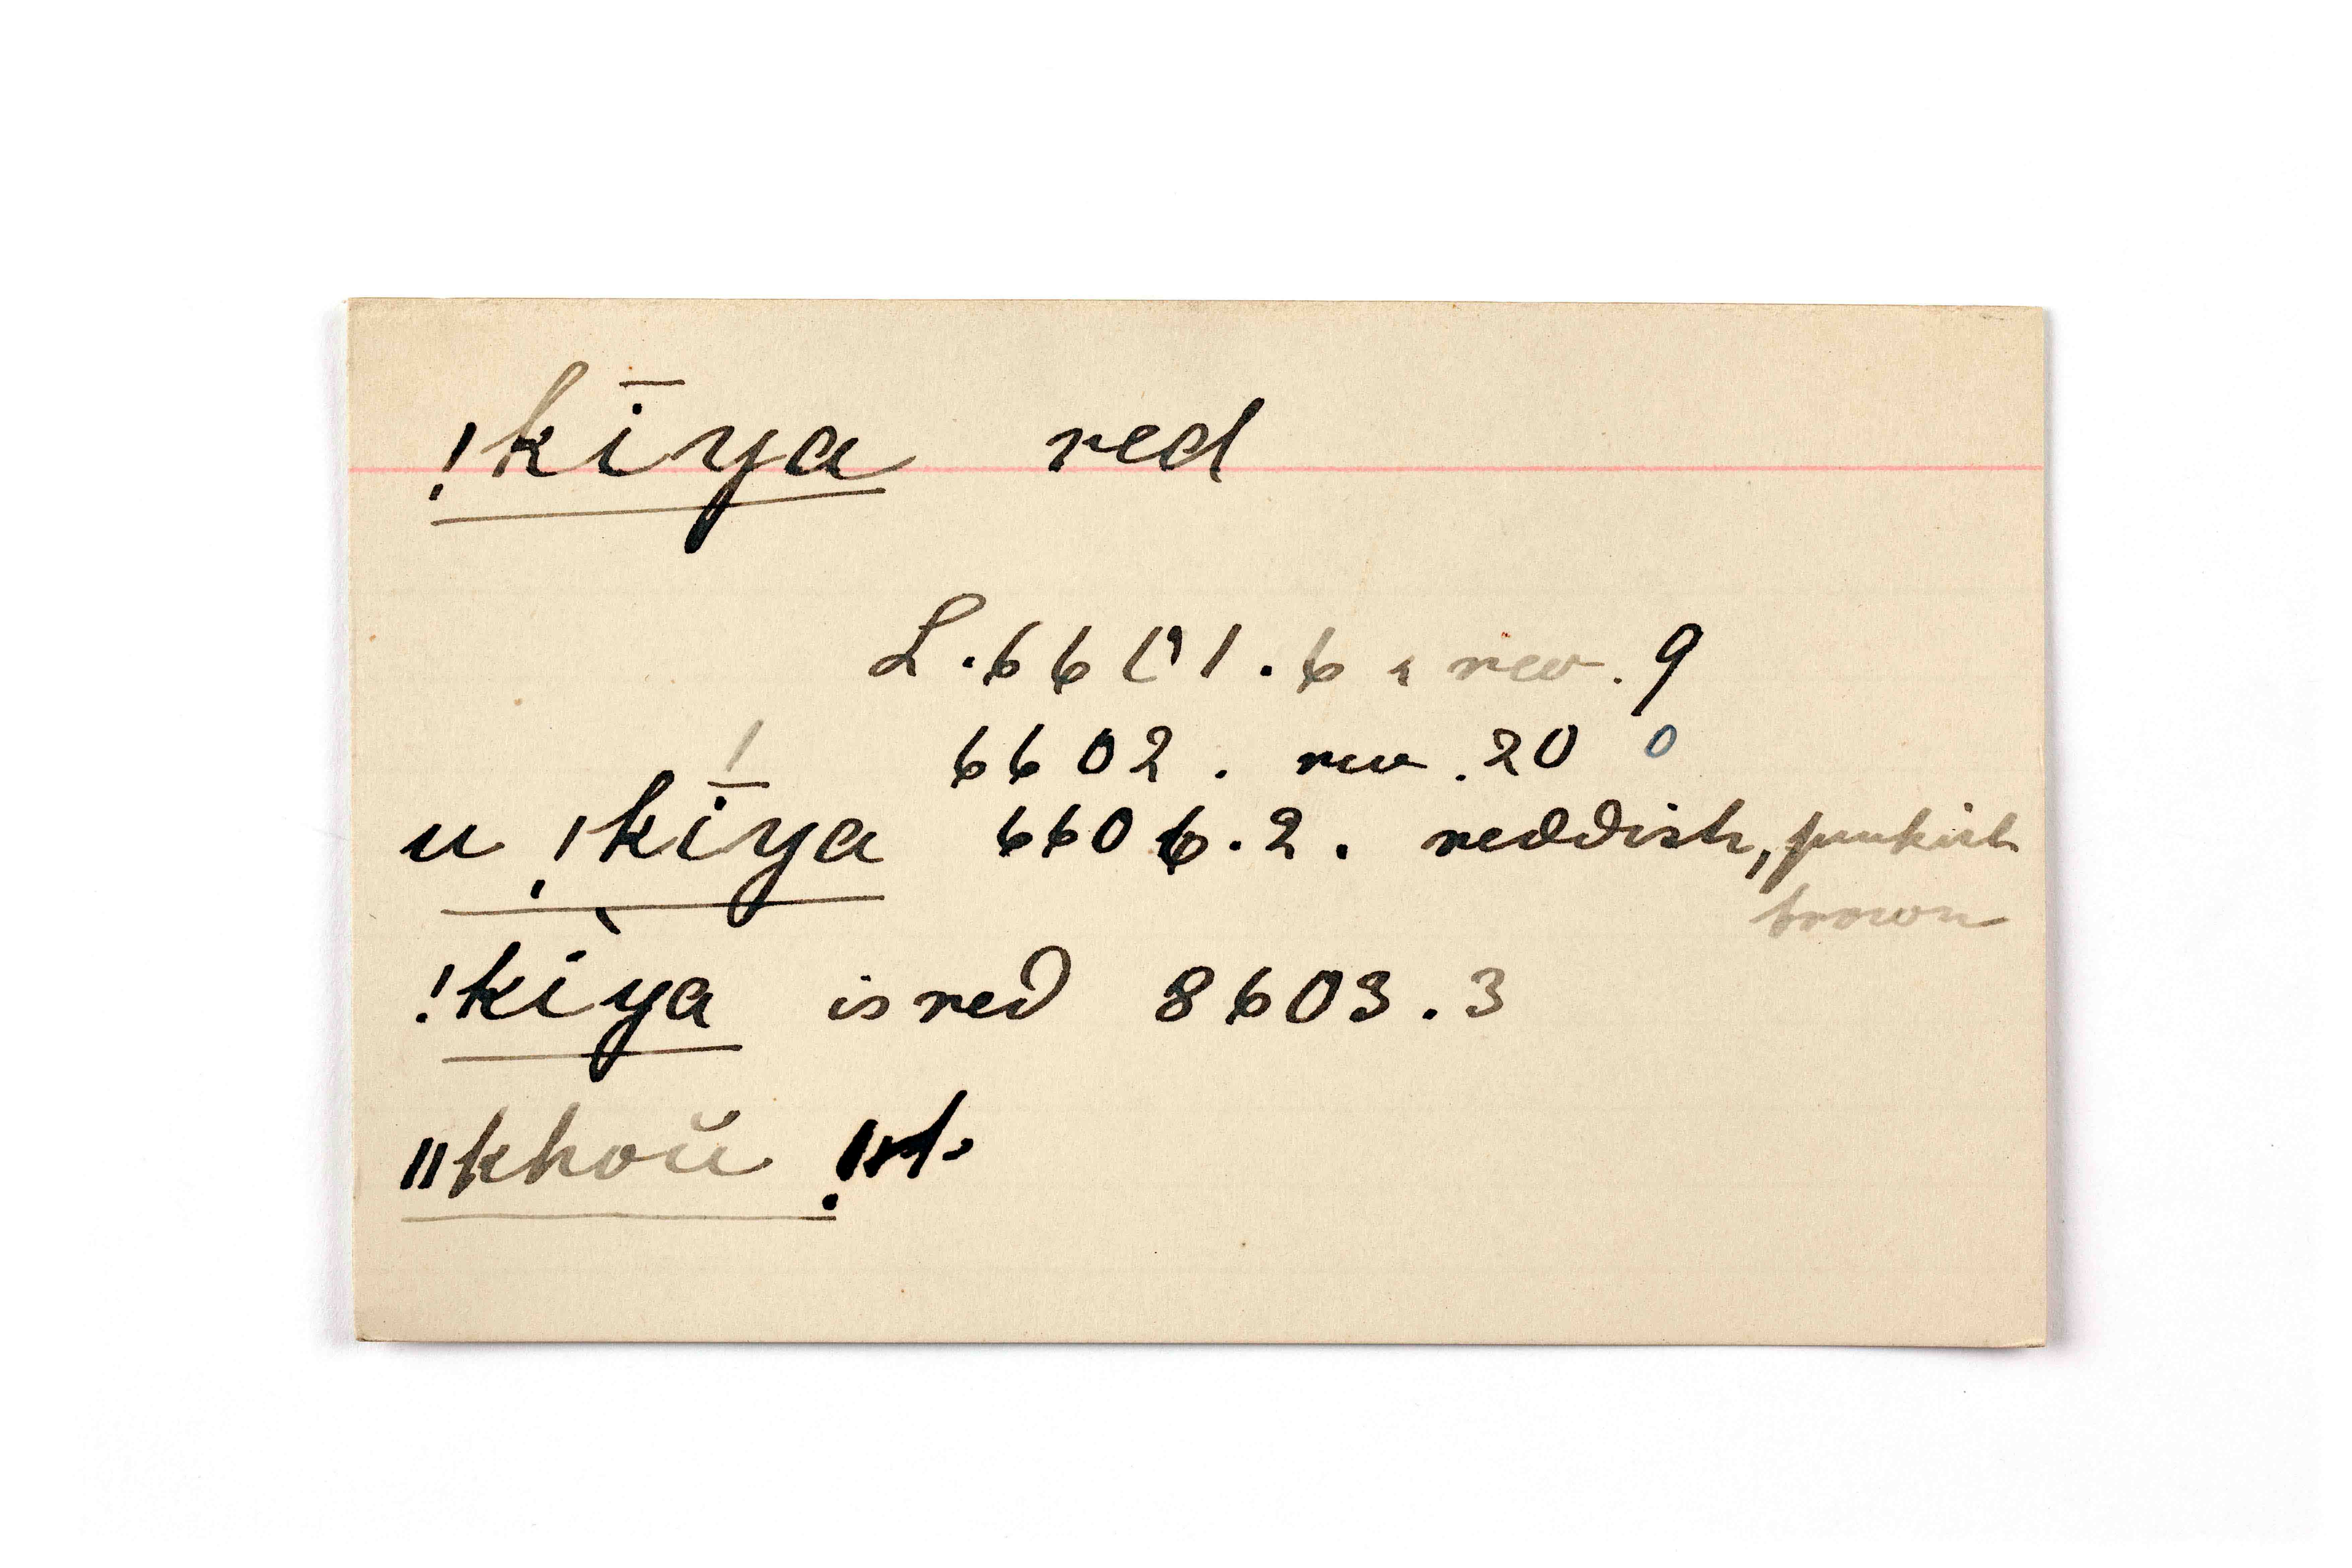 !kīya red
L.6601.6 & rev. 9
6602. rev. 20 0
u !kī́ya 6606.2. reddish, pinkish
brown
!kìya is red 8603.3
ǁkhoŭ